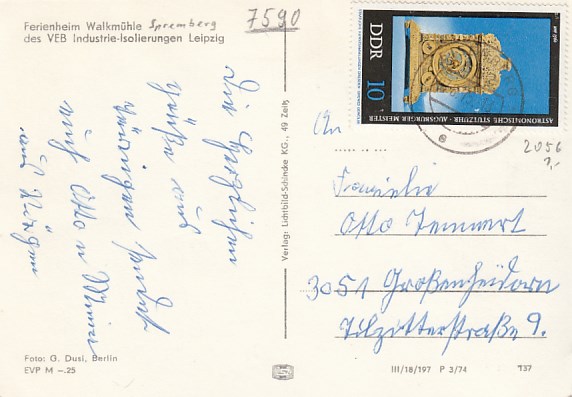 Ferienheim Walkmühle Spremberg
des VEB Industrie-Isolierungen Leipzig
7590
Die herzlichen
Grüße aus
sendet
auch Otto u
und Jürgen
Foto: G. Dusi, Berlin
EVP M –.25
Verlag: Lichtbild-Schincke KG., 49 Zeitz
DDR
10
ASTRONOMISCHE STUTZUHR · AUGSBURGER MEISTER
2056
1,-
An
Familie
Otto Temmert
3051 Großenheidorn
Tilzitterstraße 9.
III/18/197 P 3/74
137